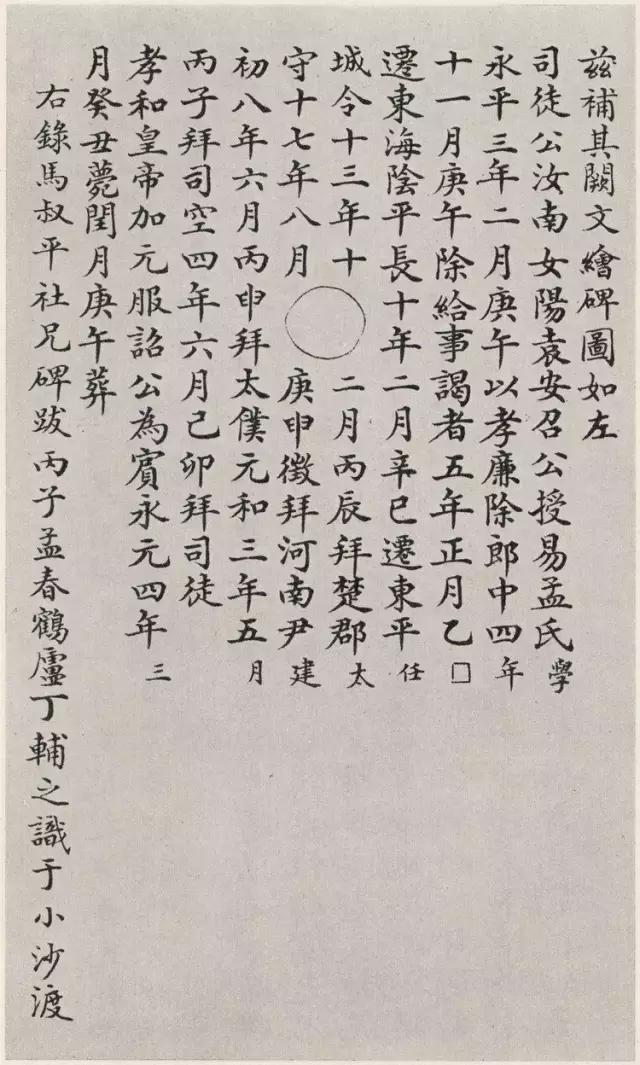 茲補其闕文繪碑圖如左
司徒公汝南女陽袁安召公授易孟氏學
永平三年二月庚午以孝廉除郎中四年
十一月庚午除給事謁者五年正月乙□
遷東海陰平長十年二月辛巳遷東平任
城令十三年十二月丙辰拜楚郡太
守十七年八月庚申徵拜河南尹建
初八年六月丙申拜太僕元和三年五月
丙子拜司空四年六月己卯拜司徒
孝和皇帝加元服詔公為賓永元四年三
月癸丑薨閏月庚午葬
右錄馬叔平社兄碑跋丙子孟春鶴廬丁輔之識于小沙渡